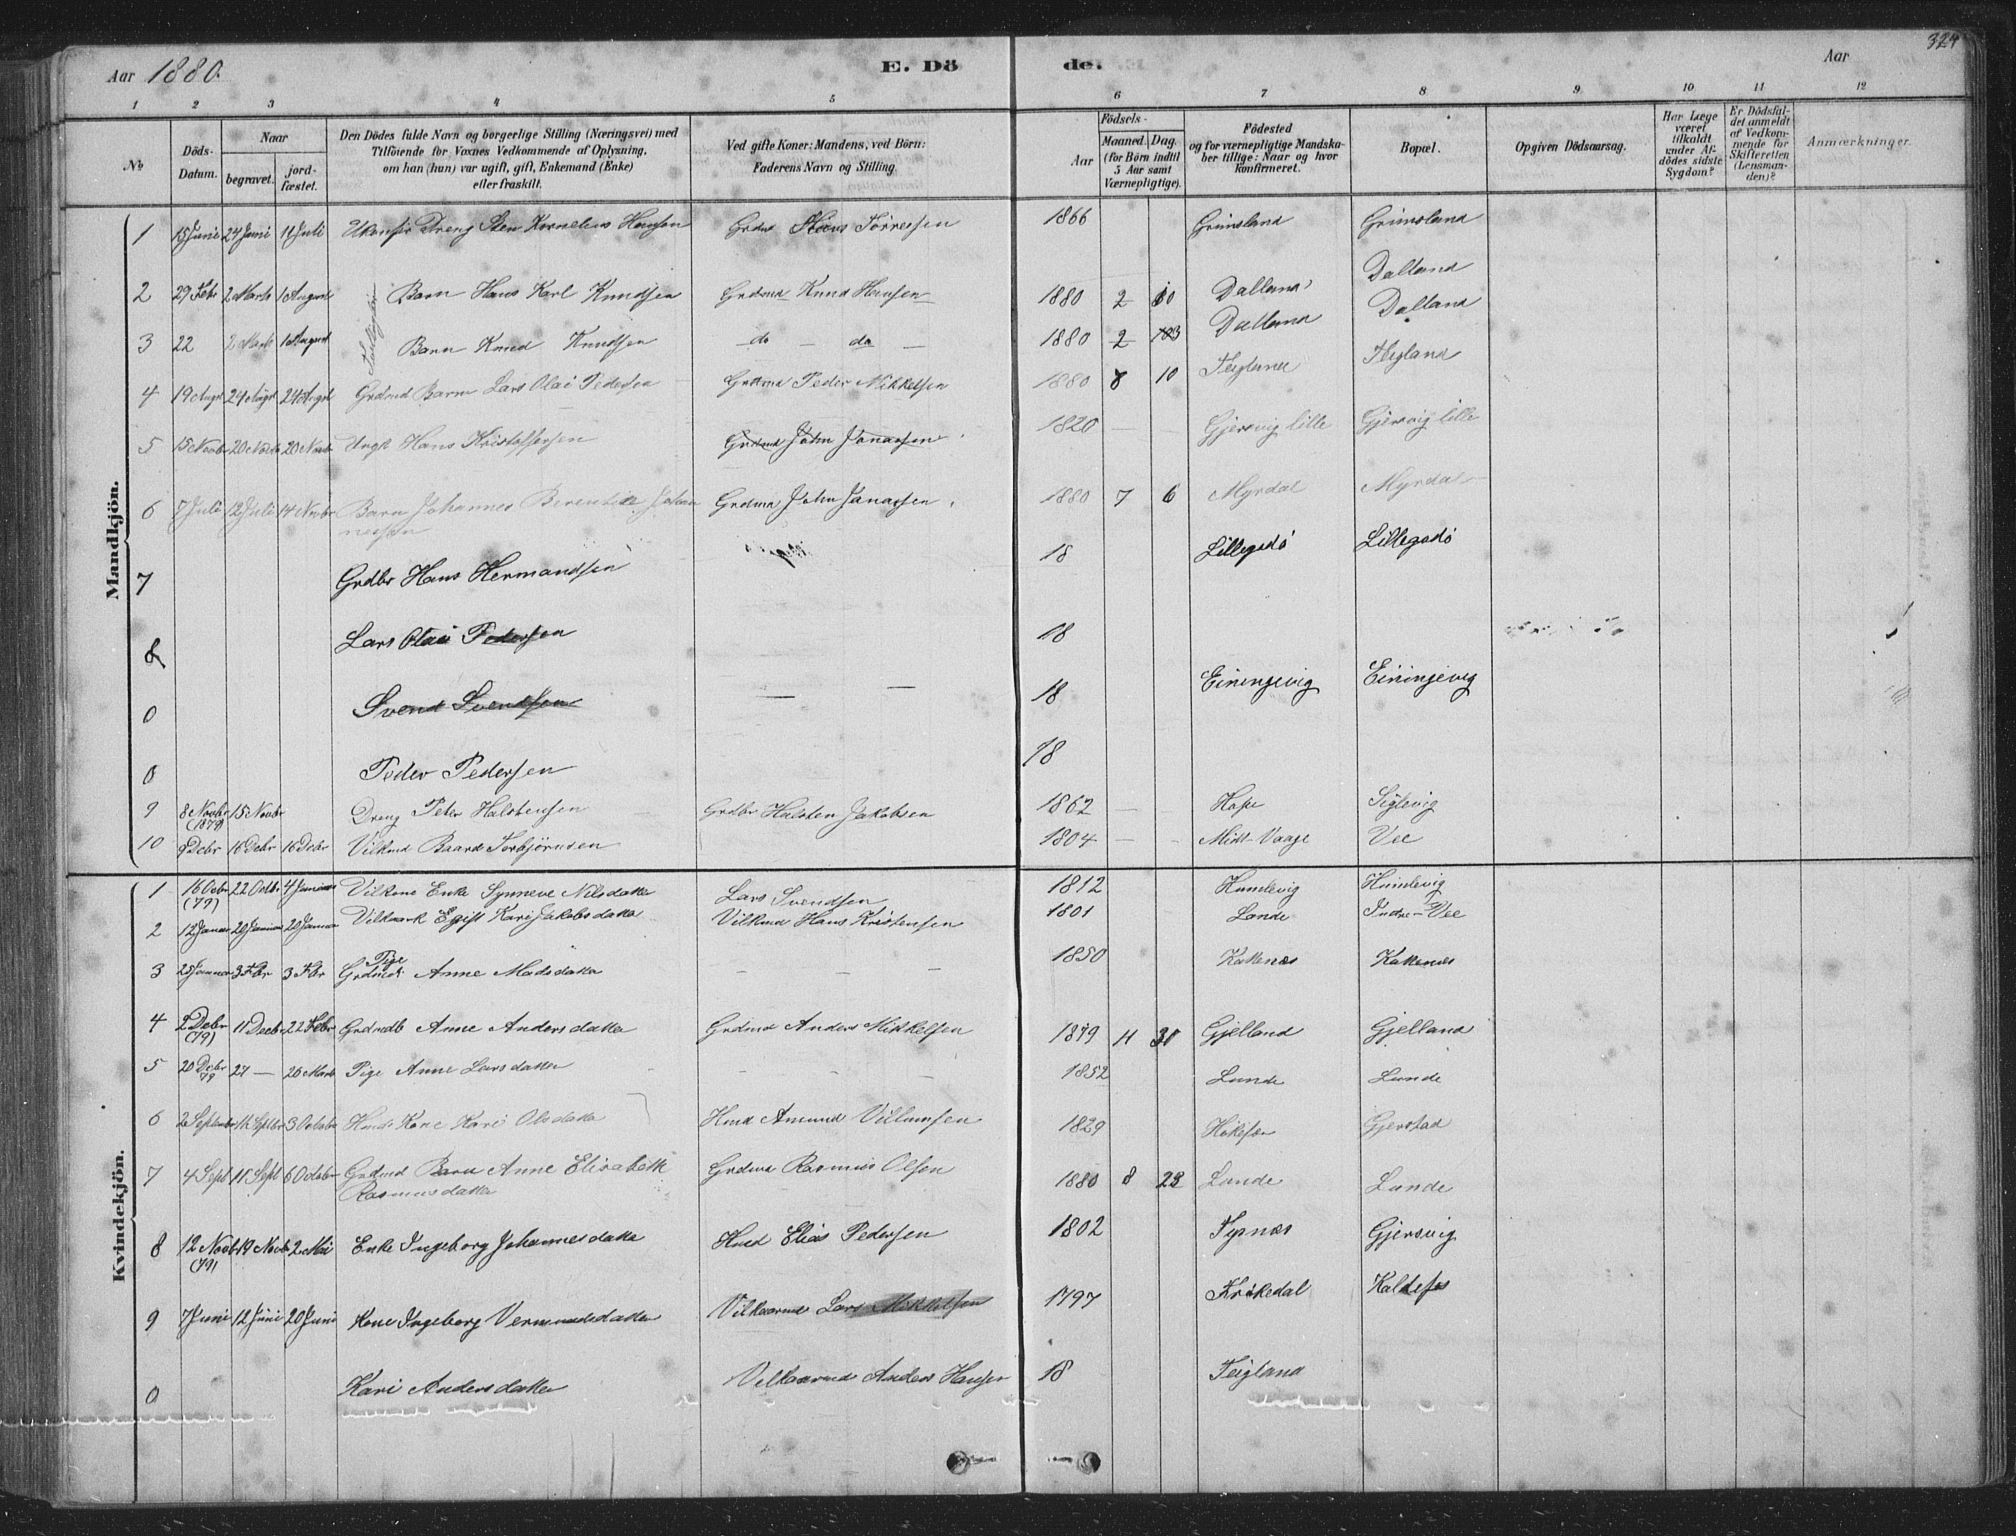 Aar 1880. E. Dö de. Aar 324
1 2 3 4 5 6 7 8 9 10 11 12
No Döds-Datum. Naar begravet. jordfæstet. Den Dödes fulde Navn og borgerlige Stilling (Næringsvei) med Tilföiende for Voxnes Vedkommende af Oplysning, om han (hun) var ugift, gift, Enkemand (Enke) eller fraskilt. Ved gifte Koner: Mandens, ved Börn: Faderens Navn og Stilling. Födsels- Aar Maaned. Dag. (for Börn indtil 5 Aar samt Værnepligtige). Födested og for værnepligtige Mandskaber tillige: Naar og hvor konfirmeret. Bopæl. Opgiven Dödsaarsag. Har Læge været tilkaldt under Afdödes sidste Sygdom? Er Dödsfaldet anmeldt af Vedkommende for Skifteretten (Lensmanden)? Anmærkninger.
Mandkjön.
1 15 Juni 24 Juni 11 Juli Ukonfir Dreng Sten Kornelius Hansen Grdmd Hans Törressen 1866 Grimsland Grimsland
2 29 Febr 2 Marts 1 August Barn Hans Karl Knudsen Grdmd Knud Hansen 1880 2 10 Dalland Dalland
3 22 2 Marts 1 August Barn Knud Knudsen do - do - 1880 2 Dalland Dalland
4 19 Augst 24 Augst 24 Augst Grdmd Barn Lars Olai Pedersen Grdmd Peder Mikkelsen 1880 8 10 Teigland Tegland
5 15 Novbr 20 Novbr 20 Novbr Ungk Hans Kristoffersen Grdmd John Jonassen 1820 - - Gjersvig lille Gjersvig lille
6 7 Juli 12 Juli 14 Novbr Barn Johannes Berentin Johannessen Grdmd John Jonassen 1880 7 6 Myrdal Myrdal
7 Grdbr Hans Hermandsen 18 Lillegadö Lillegadö
8 Lars Olai Pedersen 18
0 Svend Svendsen - - 18 Einingevig Einingevig
0 Peder Pedersen 18
9 8 Novbr (1879) 15 Novbr Dreng Peter Halstensen Grdbr Halsten Jakobsen 1862 - - Hope Siglevig
10 9 Debr 16 Debr 16 Debr Vilkmd Baard Torbjörnsen 1804 - - Midt-Vaage Vee
Kvindekjön.
1 16 Octbr (79) 22 Octbr 4 Januar Vilkone Enke Synneve Nilsdatter Lars Svendsen 1812 Humlevig Humlevig
2 12 Januar 20 Januar 20 Januar Vilkaark Egift Kari Jakobsdatter Vilkmd Hans Kristensen 1801 Lande Indre-Vee
3 25 Januar 3 Fbr 3 Fbr Grdmds Pige Anne Madsdatter - - - 1850 Kattenæs Kattenæs
4 2 Debr (79) 11 Decbr 22 Febr Grdmdb Anne Andersdatter Grdmd Anders Mikkelsen 1879 11 30 Gjelland Gjelland
5 20 Debr 79 27 - 26 Marts Pige Anne Larsdatter - - - 1852 Lunde Lunde
6 2 September 11 Septbr 3 Octobr Hmds Kone Kari Olsdatter Hmd Amund Villumsen 1829 Gjerstad
7 4 Sept 11 Sept 6 October Grdmd Barn Anne Elisabeth Rasmusdatter Grdmd Rasmus Olsen 1880 8 23 Lunde Lunde
8 12 Novbr (79) 19 Novbr 2 Mai Enke Ingeborg Johannesdatter Hmd Elias Pedersen 1802 Tysnæs Gjersvig
9 7 Juni 12 Juni 20 Juni Kone Ingeborg Vermundsdatter Vilkaarmd Lars Mikkelsen 1797 Krökedal Kaldefos
0 Kari Andersdatter Velkaarmd Anders Hansen 18 Teigland